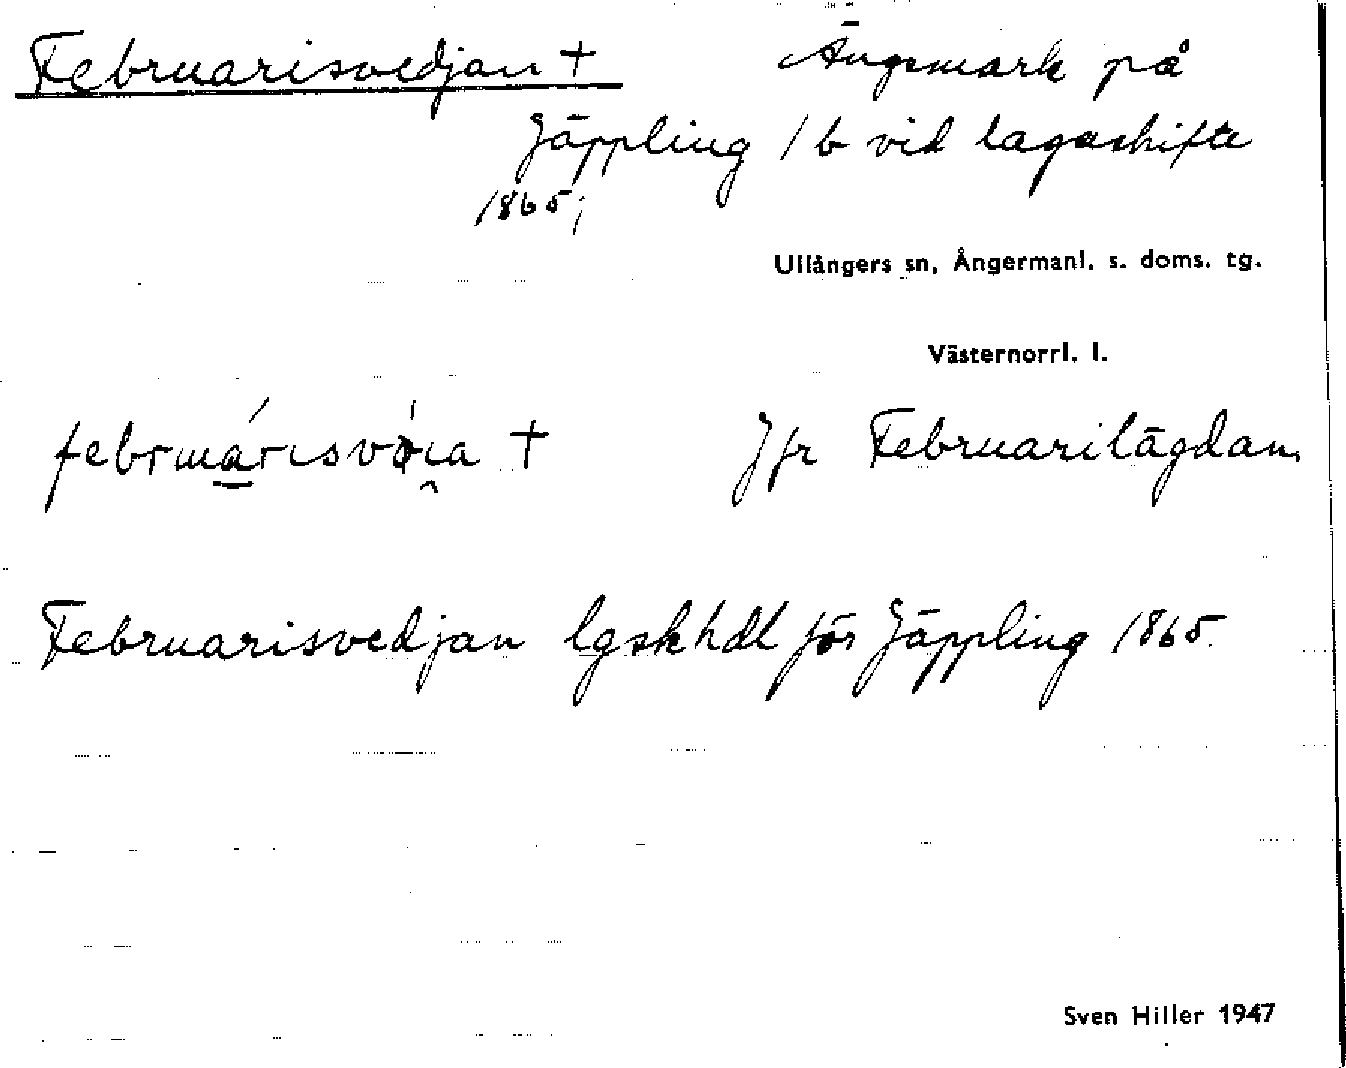 Februarisvedjan † Ängsmark på
Jäppling 1b vid lagaskifte
1865;
Ullångers sn, Ångermanl. s. doms. tg.
Västernorrl. l.
† Jfr Februarilägdan
Februarisvedjan lgskhdl för Jäppling 1865.
Sven Hiller 1947